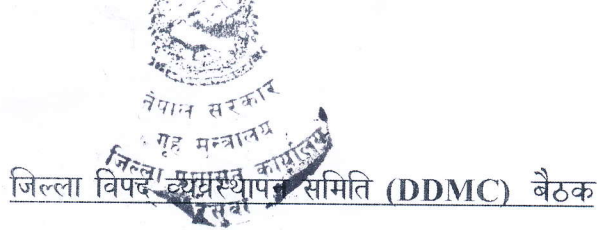 नेपाल सरकार
गृह मन्त्रालय
जिल्ला प्रशासन कार्यालय
रसुवा
जिल्ला विपद् व्यवस्थापन समिति (DDMC) बैठक